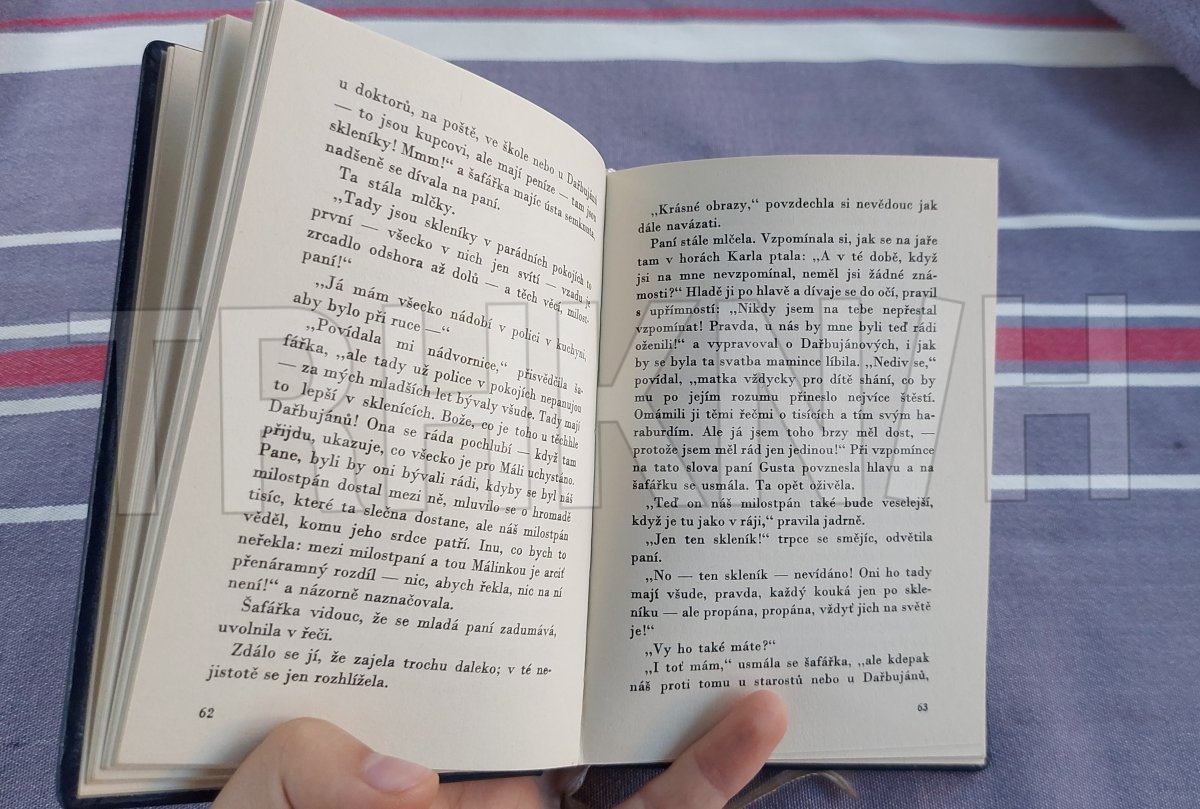 u doktorů, na poště, ve škole nebo u Dařbujánů
— to jsou kupcovi, ale mají peníze — tam jsou
skleníky! Mmm!“ a šafářka majíc ústa semknuta,
nadšeně se dívala na paní.
Ta stála mlčky.
„Tady jsou skleníky v parádních pokojích to
první — všecko v nich jen svítí — vzadu je
zrcadlo odshora až dolů — a těch věcí, milost-
paní!“
„Já mám všecko nádobí v polici v kuchyni,
aby bylo při ruce —“
„Povídala mi nádvornice,“ přisvědčila ša-
fářka, „ale tady už police v pokojích nepanujou
— za mých mladších let bývaly všude. Tady mají
to lepší v sklenících. Bože, co je toho u těchhle
Dařbujánů! Ona se ráda pochlubí — když tam
přijdu, ukazuje, co všecko je pro Máli uchystáno.
Pane, byli by oni bývali rádi, kdyby se byl náš
milostpán dostal mezi ně, mluvilo se o hromadě
tisíc, které ta slečna dostane, ale náš milostpán
věděl, komu jeho srdce patří. Inu, co bych to
neřekla: mezi milostpaní a tou Málinkou je arciť
přenáramný rozdíl — nic, abych řekla, nic na ní
není!“ a názorně naznačovala.
Šafářka vidouc, že se mladá paní zadumává,
uvolnila v řeči.
Zdálo se jí, že zajela trochu daleko; v té ne-
jistotě se jen rozhlížela.
62
„Krásné obrazy,“ povzdechla si nevědouc jak
dále navázati.
Paní stále mlčela. Vzpomínala si, jak se na jaře
tam v horách Karla ptala: „A v té době, když
jsi na mne nevzpomínal, neměl jsi žádné zná-
mosti?“ Hladě ji po hlavě a dívaje se do očí, pravil
s upřímností: „Nikdy jsem na tebe nepřestal
vzpomínat! Pravda, u nás by mne byli teď rádi
oženili!“ a vypravoval o Dařbujánových, i jak
by se byla ta svatba mamince líbila. „Nediv se,“
povídal, „matka vždycky pro dítě shání, co by
mu po jejím rozumu přineslo nejvíce štěstí.
Omámili ji těmi řečmi o tisících a tím svým ha-
raburdím. Ale já jsem toho brzy měl dost, —
protože jsem měl rád jen jedinou!“ Při vzpomínce
na tato slova paní Gusta povznesla hlavu a na
šafářku se usmála. Ta opět oživěla.
„Teď on náš milostpán také bude veselejší,
když je tu jako v ráji,“ pravila jadrně.
„Jen ten skleník!“ trpce se smějíc, odvětila
paní.
„No — ten skleník — nevídáno! Oni ho tady
mají všude, pravda, každý kouká jen po skle-
níku — ale propána, propána, vždyť jich na světě
je!“
„Vy ho také máte?“
„I toť mám,“ usmála se šafářka, „ale kdepak
náš proti tomu u starostů nebo u Dařbujánů,
63
TRHKNIH